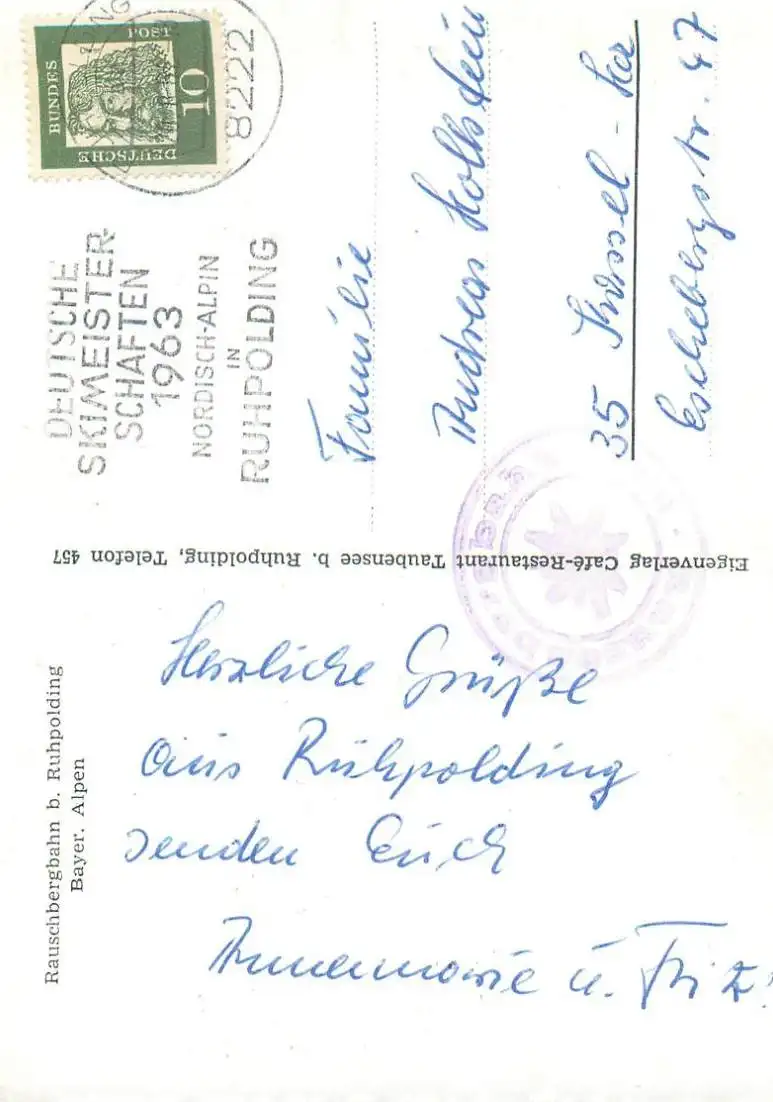 Rauschbergbahn b. Ruhpolding
Bayer. Alpen
Herzliche Grüße
aus Ruhpolding
senden Euch
Annemarie u. Fritz
Eigenverlag Café-Restaurant Taubensee b. Ruhpolding, Telefon 457
DEUTSCHE
BUNDES
POST
10
8222
DEUTSCHE
SKIMEISTER-
SCHAFTEN
1963
NORDISCH-ALPIN
IN
RUHPOLDING
Familie
Andreas
35 Kassel - Har
Eschebergstr. 47